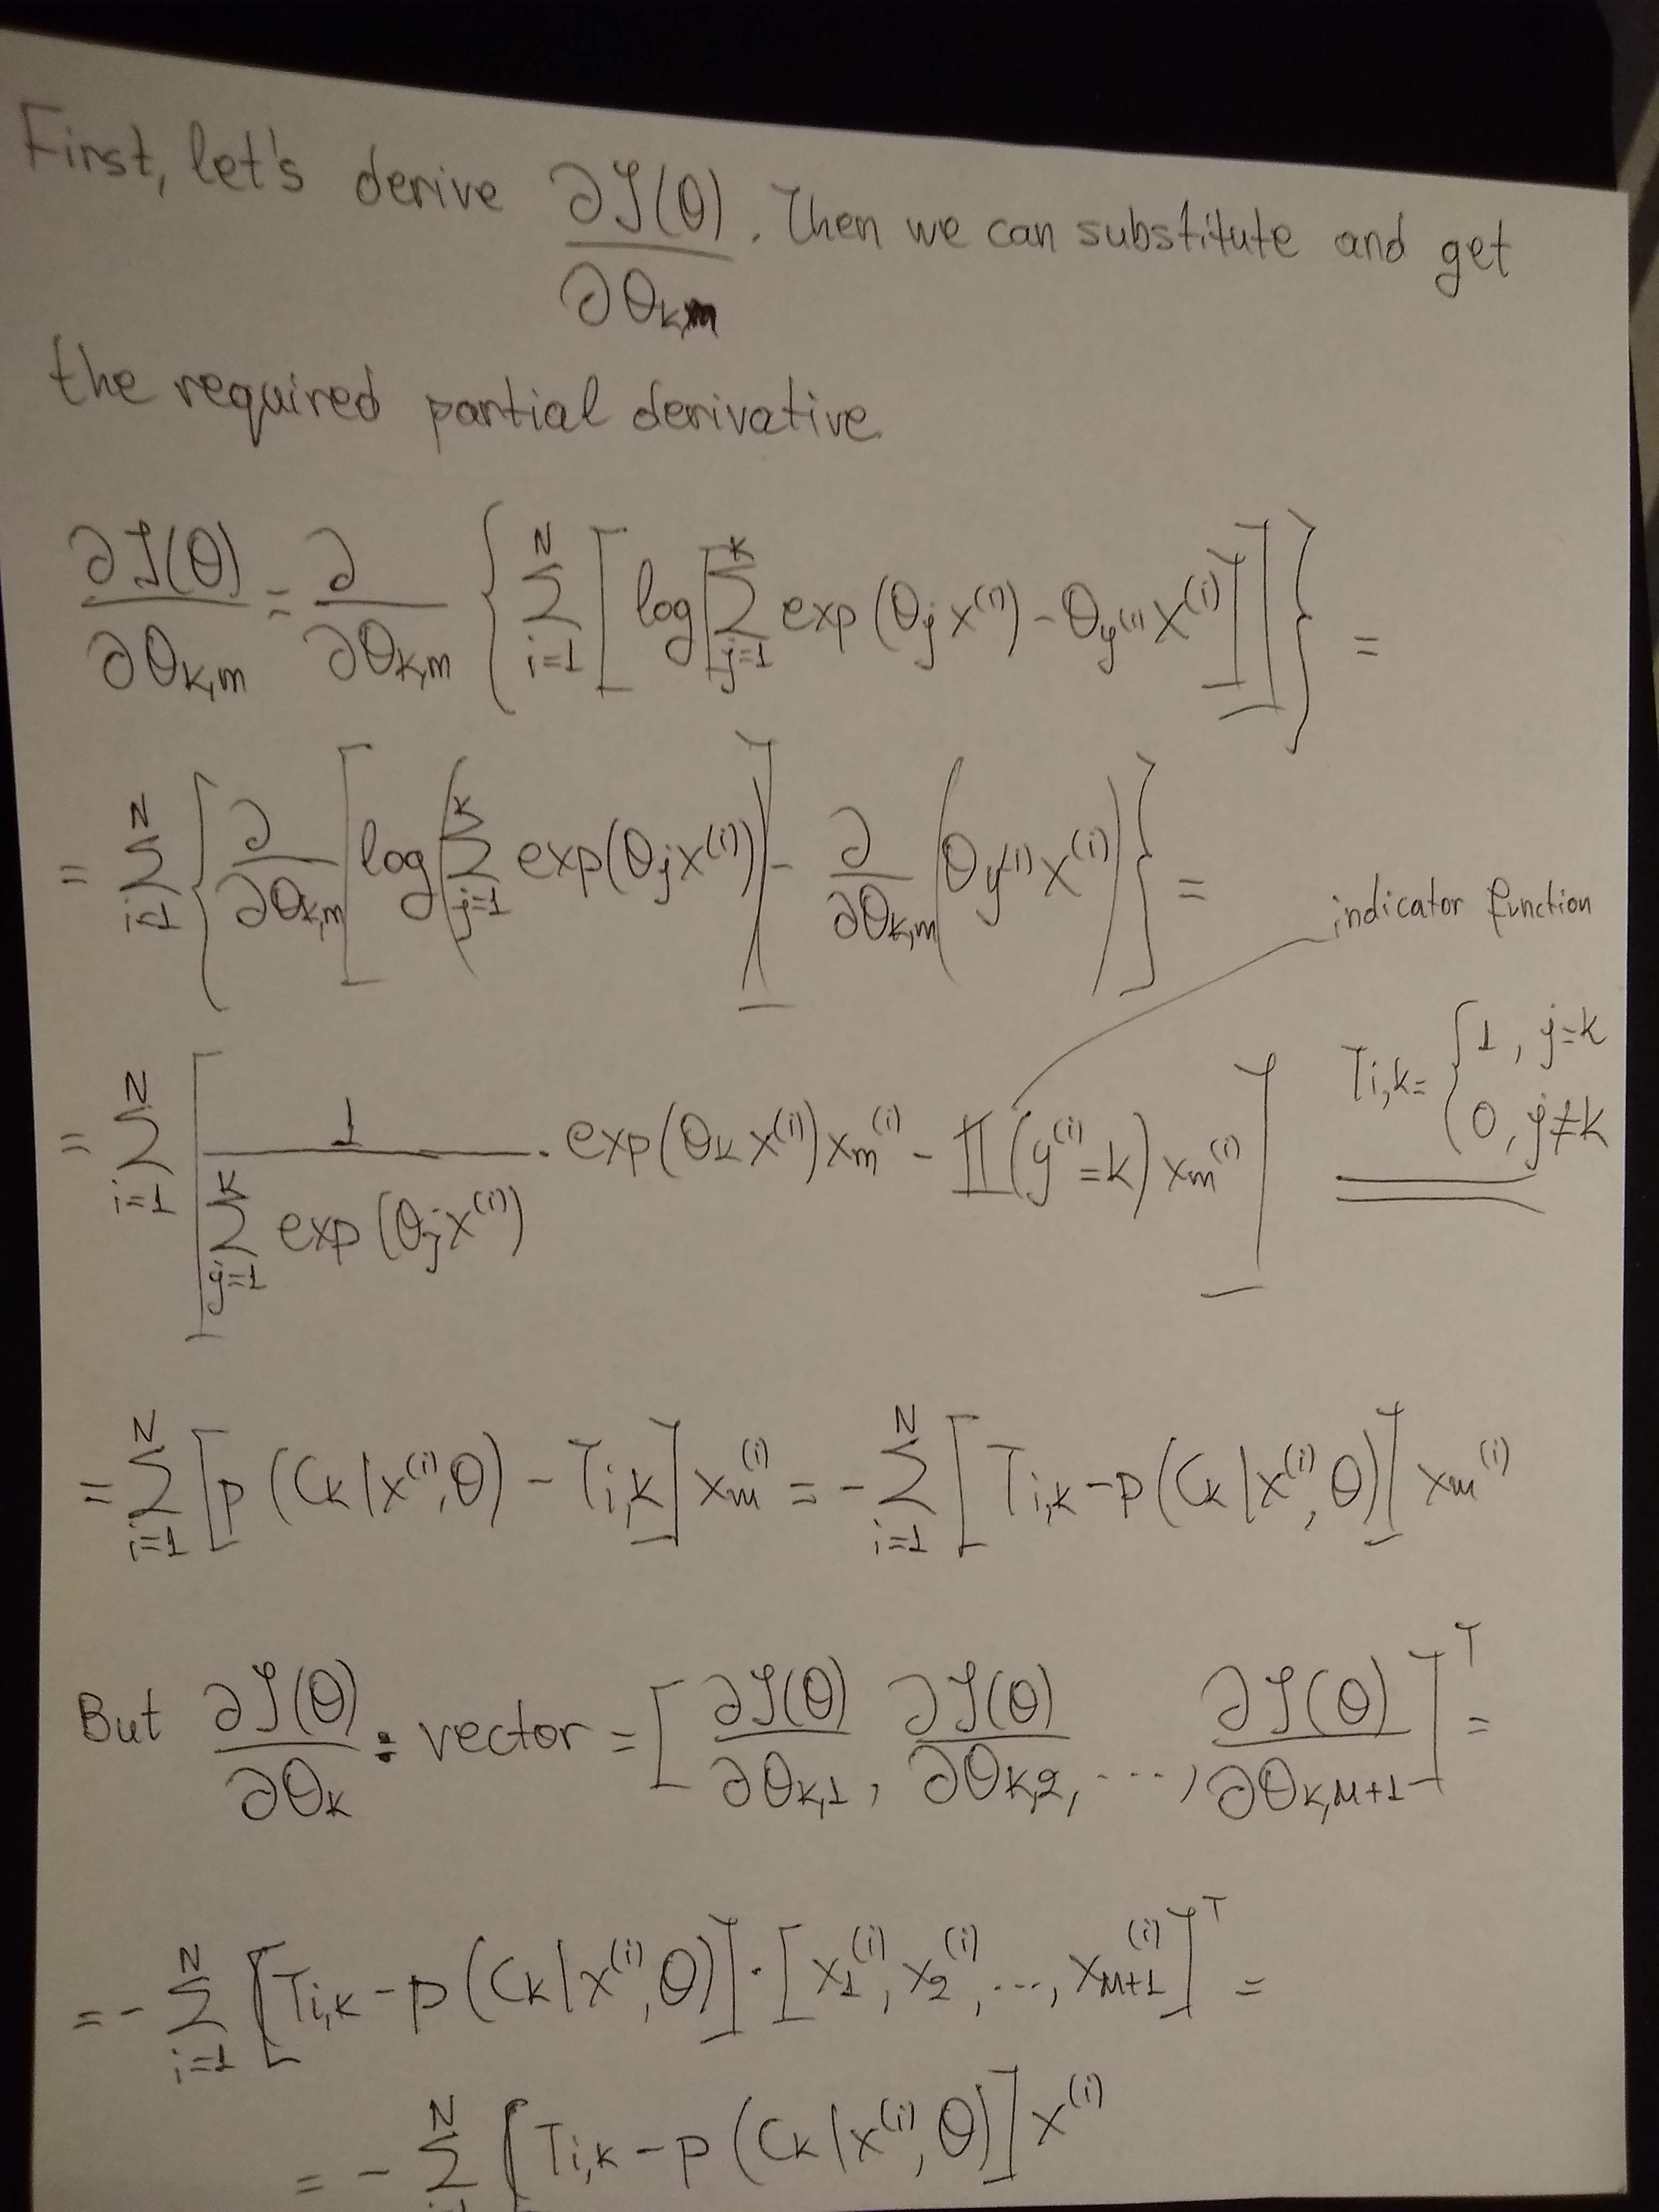 First, let's derive ∂J(θ)/∂θ_{k,m}. Then we can substitute and get
the required partial derivative.
∂J(θ)/∂θ_{k,m} = ∂/∂θ_{k,m} { Σ_{i=1}^{N} [ log [ Σ_{j=1}^{K} exp(θ_j x^{(i)}) - θ_{y^{(i)}} x^{(i)} ] ] } =
= Σ_{i=1}^{N} { ∂/∂θ_{k,m} [ log ( Σ_{j=1}^{K} exp(θ_j x^{(i)}) ) ] - ∂/∂θ_{k,m} ( θ_{y^{(i)}} x^{(i)} ) } =
indicator function
= Σ_{i=1}^{N} [ 1 / Σ_{j=1}^{K} exp(θ_j x^{(i)}) · exp(θ_k x^{(i)}) x_m^{(i)} - 𝕀(y^{(i)} = k) x_m^{(i)} ]
T_{i,k} = { 1, y=k
0, y≠k
= Σ_{i=1}^{N} [ p(C_k | x^{(i)}, θ) - T_{i,k} ] x_m^{(i)} = - Σ_{i=1}^{N} [ T_{i,k} - p(C_k | x^{(i)}, θ) ] x_m^{(i)}
But ∂J(θ)/∂θ_k : vector = [ ∂J(θ)/∂θ_{k,1}, ∂J(θ)/∂θ_{k,2}, ..., ∂J(θ)/∂θ_{k,M+1} ]^T =
= - Σ_{i=1}^{N} [ T_{i,k} - p(C_k | x^{(i)}, θ) ] · [ x_1^{(i)}, x_2^{(i)}, ..., x_{M+1}^{(i)} ]^T =
= - Σ^{N} [ T_{i,k} - p(C_k | x^{(i)}, θ) ] x^{(i)}